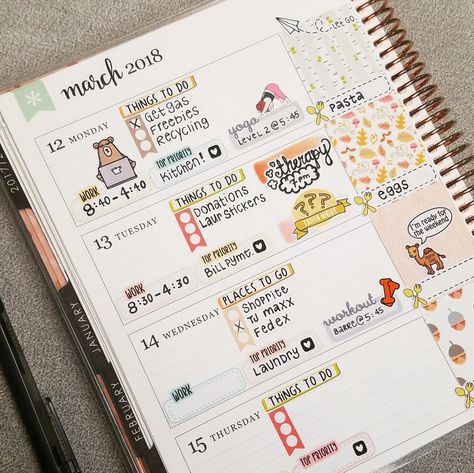 march 2018
LET GO
12 MONDAY
THINGS TO DO
Get gas
Freebies
Recycling
yoga
LEVEL 2 @ 5:45
TOP PRIORITY
Kitchen!
WORK
8:40-4:40
Therapy
pasta
13 TUESDAY
THINGS TO DO
Donations
Laur stickers
??? 
TRIVIA NIGHT
TOP PRIORITY
Bill pymt.
WORK
8:30-4:30
eggs
I'm ready for
the weekend
14 WEDNESDAY
PLACES TO GO
Shoprite
TJ maxx
Fedex
workout
BARRE @ 5:45
TOP PRIORITY
Laundry
WORK
15 THURSDAY
THINGS TO DO
TOP PRIORITY
JANUARY
FEBRUARY